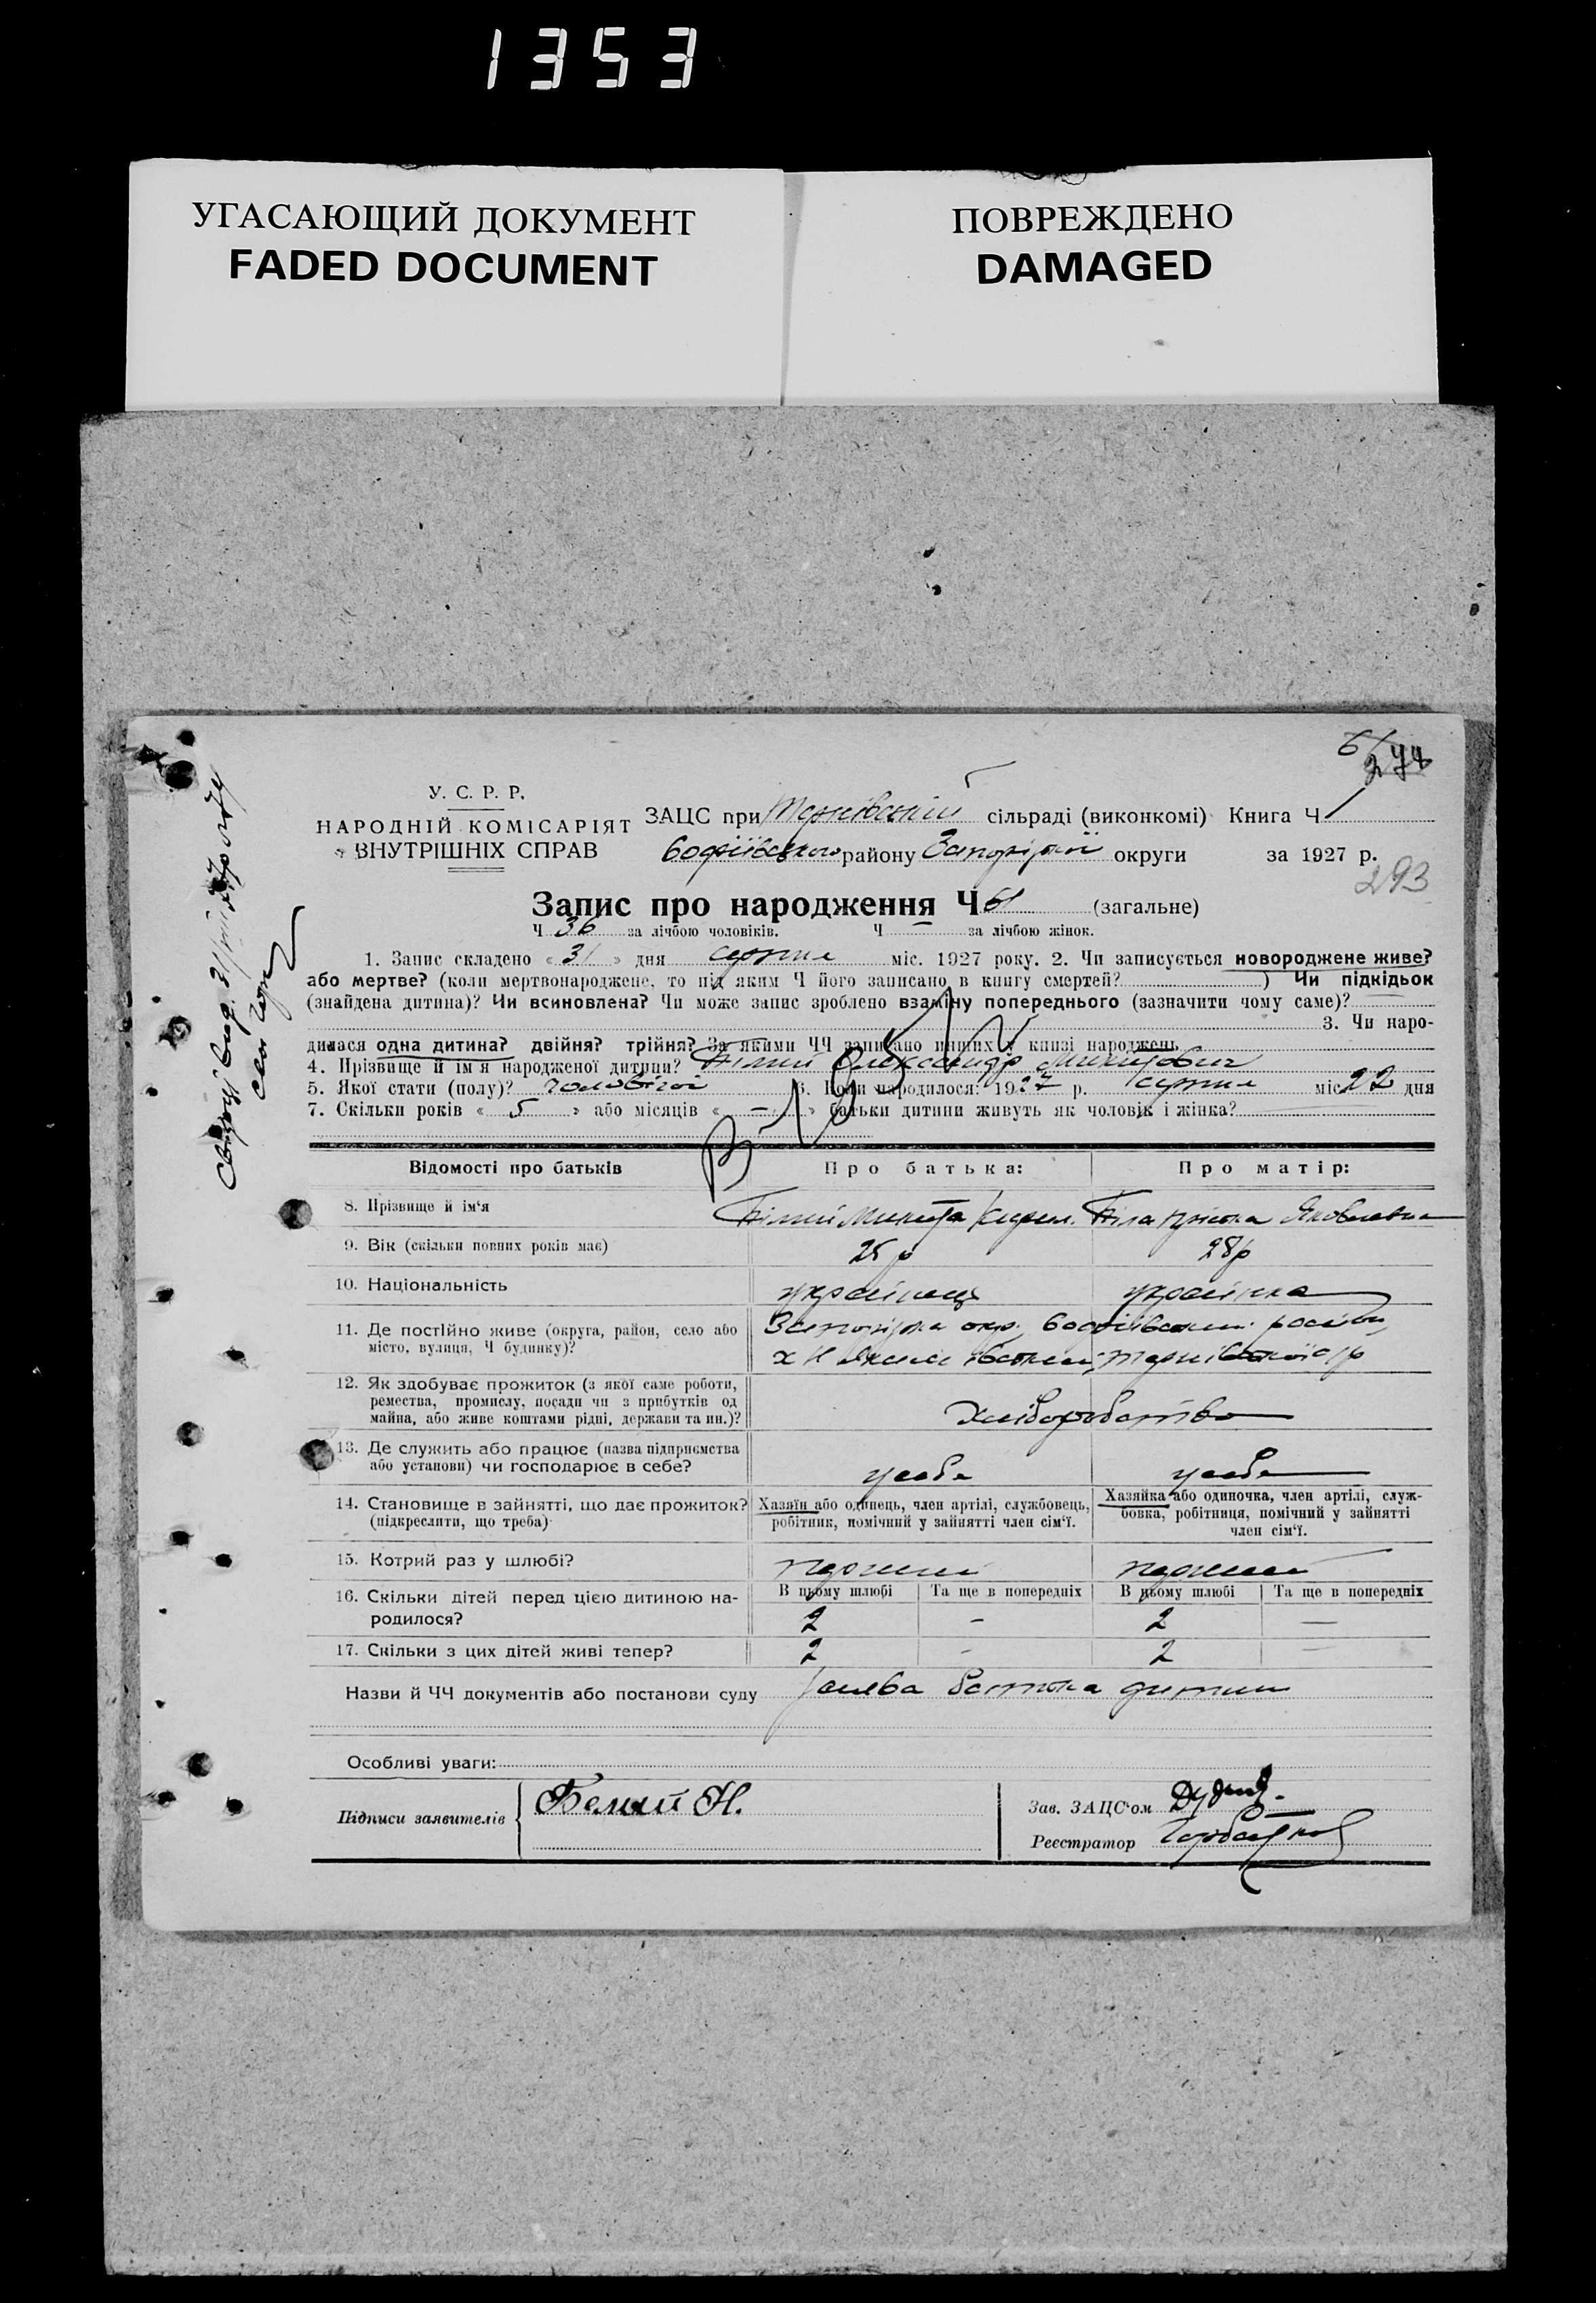 1353
УГАСАЮЩИЙ ДОКУМЕНТ
FADED DOCUMENT
ПОВРЕЖДЕНО
DAMAGED
274
У. С. Р. Р.
НАРОДНІЙ КОМІСАРІЯТ
ВНУТРІШНІХ СПРАВ
ЗАЦС при Тернівській сільраді (виконкомі) Книга Ч 1
Софіївського району Запорізької округи за 1927 р.
293
Запис про народження Ч 61 (загальне)
Ч 36 за лічбою чоловіків. Ч за лічбою жінок.
1. Запис складено « 31 » дня серпня міс. 1927 року. 2. Чи записується новороджене живе?
або мертве? (коли мертвонароджене, то під яким Ч його записано в книгу смертей? ) Чи підкідьок
(знайдена дитина)? Чи всиновлена? Чи може запис зроблено взаміну попереднього (зазначити чому саме)?
3. Чи наро-
дилася одна дитина? двійня? трійня? За якими ЧЧ записано инших у книзі народжень
4. Прізвище й ім'я народженої дитини? Білий Олександр Микитович
5. Якої стати (полу)? чоловічої 6. Коли народилося: 1927 р. серпня міс 22 дня
7. Скільки років « 5 » або місяців « — » батьки дитини живуть як чоловік і жінка?
Відомості про батьків Про батька: Про матір:
8. Прізвище й ім'я Білий Микита Кирил. Біла Яковлевна
9. Вік (скільки повних років має) 25 р 28 р
10. Національність українець українка
11. Де постійно живе (округа, район, село або Запорізька окр., Софіївськ. район,
місто, вулиця, Ч будинку)? Тернівської с/р
12. Як здобуває прожиток (з якої саме роботи,
ремества, промислу, посади чи з прибутків од
майна, або живе коштами рідні, держави та ин.)? Хліборобство
13. Де служить або працює (назва підприємства
або установи) чи господарює в себе? у себе у себе
14. Становище в зайнятті, що дає прожиток? Хазяїн або одинець, член артілі, службовець, Хазяйка або одиночка, член артілі, служ-
(підкреслити, що треба) робітник, помічний у зайнятті член сім'ї. бовка, робітниця, помічний у зайнятті
член сім'ї.
15. Котрий раз у шлюбі? перший перший
В цьому шлюбі Та ще в попередніх В цьому шлюбі Та ще в попередніх
16. Скільки дітей перед цією дитиною на-
родилося? 2 - 2 —
17. Скільки з цих дітей живі тепер? 2 - 2 —
Назви й ЧЧ документів або постанови суду Заява батька дитини
Особливі уваги:
Підписи заявителів Белий Н.
Зав. ЗАЦС'ом
Реєстратор